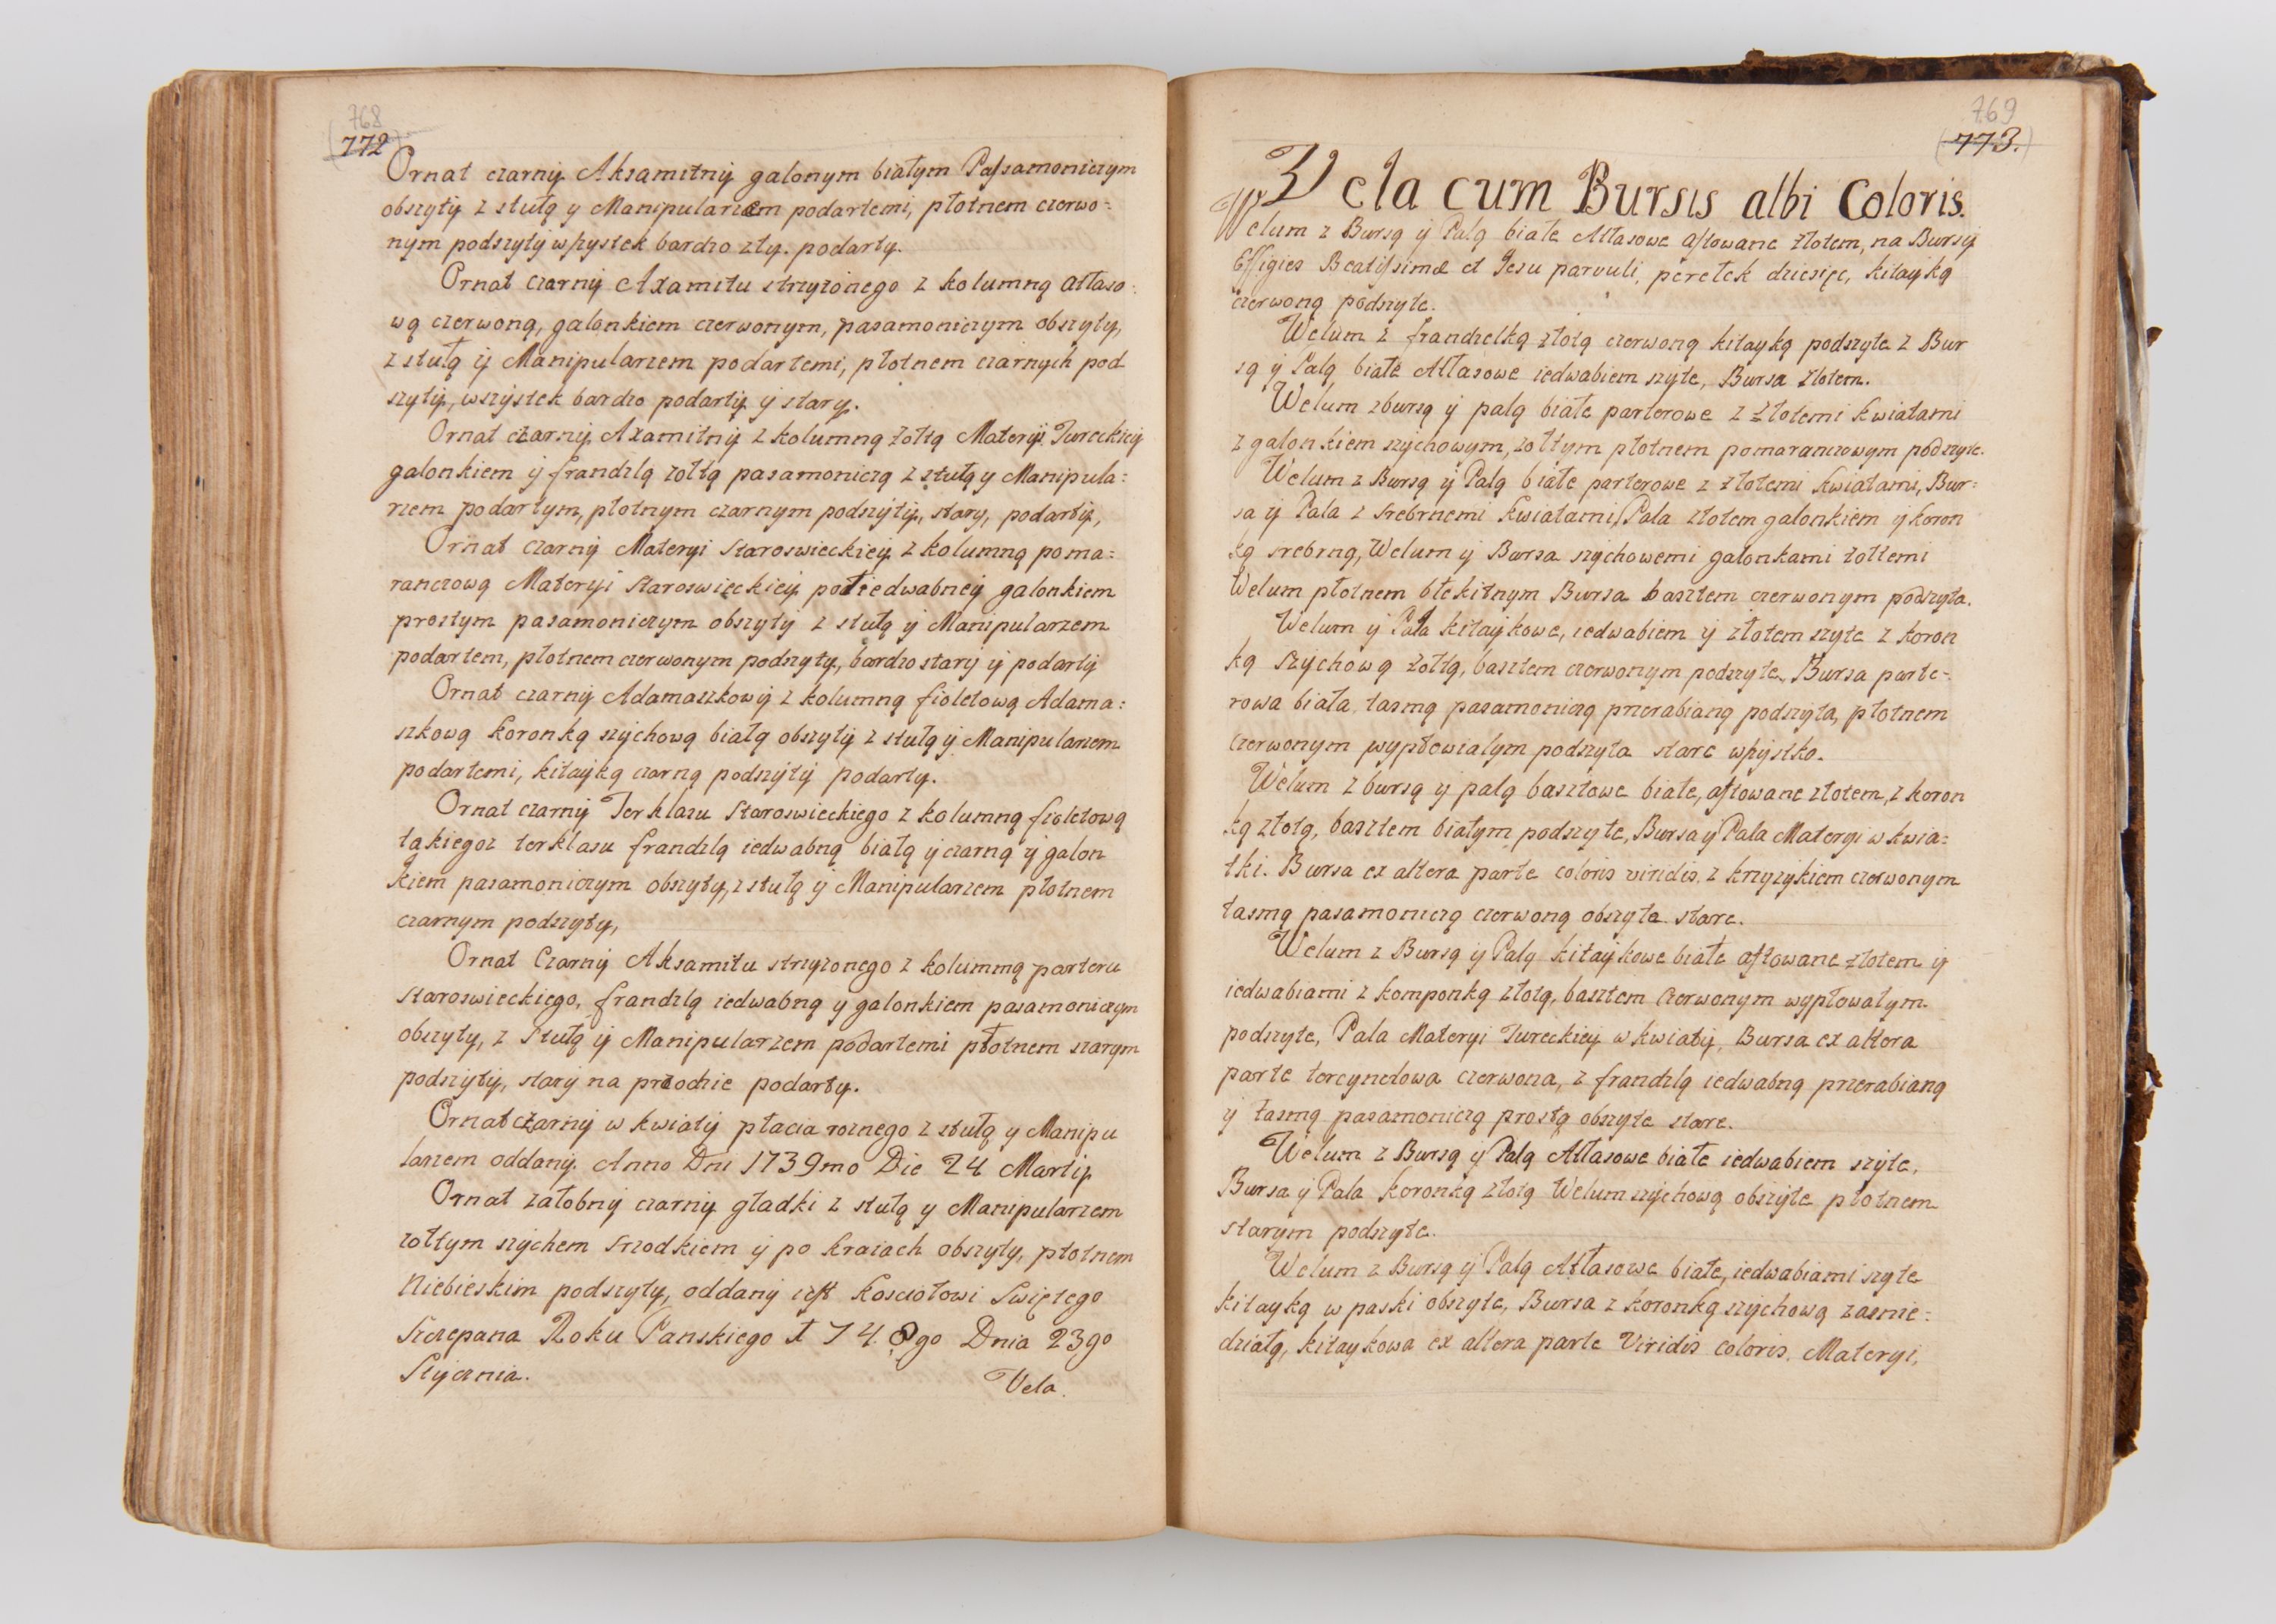 768
772
Ornat czarny Aksamitny galonym białym Passamoniczym
obszyty z stułą y Manipularzem podartemi, płotnem czerwo=
nym podszyty wszystek bardzo zły. podarty.
Ornat czarny Axamitu strzyżonego z kolumną atłaso=
wą czerwoną, galonkiem czerwonym, pasamoniczym obszyty,
z stułą ÿ Manipularzem podartemi, płotnem czarnych pod
szyty, wszystek bardzo podarty ÿ stary.
Ornat czarny Axamitny z kolumną żołtą Materyi Tureckiey
galonkiem ÿ frandzlą zołtą pasamoniczą z stułą y Manipula=
rzem podartym, płotnym czarnym podszyty, stary, podarty,
Ornat czarny Materyi Staroswieckiey z kolumną poma=
ranczową Materyi Staroswieckiey połiedwabney galonkiem
prostym pasamoniczym obszyty z stułą ÿ Manipularzem
podartem, płotnem czerwonym podszyty, bardzo stary ÿ podarty
Ornat czarny Adamaszkowy z kolumną fioletową Adama=
szkową koronką szychową białą obszyty z stułą ÿ Manipularzem
podartemi, kitayką czarną podszyty podarty.
Ornat czarny Terklasu Staroswieckiego z kolumną fioletową
takiegoz terklasu frandzlą iedwabną białą ÿ czarną ÿ galon
kiem pasamoniczym obszyty, z stułą ÿ Manipularzem płotnem
czarnym podszyty,
Ornat Czarny Aksamitu strzyzonego z kolumną parteru
staroswieckiego, frandzlą iedwabną y galonkiem pasamoniczym
obszyty, z Stułą ÿ Manipularzem podartemi płotnem szarym
podszyty, stary na przodzie podarty.
Ornat czarny w kwiaty płacia roznego z stułą y Manipu
larzem oddany. Anno Dni 1739mo Die 24 Martij
Ornat załobny czarny gładki z stułą y Manipularzem
zołtym szychem srzodkiem ÿ po kraiach obszyty, płotnem
Niebieskim podszyty, oddany iest Kosciołowi Swiętego
Szczepana Roku Panskiego 1748go Dnia 23go
Stycznia.
Vela.
769
773.
Vela cum Bursis albi Coloris.
Welum z Bursą ÿ Palą białe Atłasowe aftowane złotem, na Bursy
Effigies Beatissimæ et Jesu parvuli, perełek dziesięc, kitayką
czerwoną podszyte.
Welum z frandzelką złotą czerwoną kitayką podszyte z Bur
są ÿ Palą białe Atłasowe iedwabiem szyte, Bursa złotem.
Welum z bursą ÿ palą białe parterowe z złotemi kwiatami
z galonkiem szychowym, zołtym płotnem pomaranczowym podszyte.
Welum z Bursą ÿ Palą białe parterowe z złotemi kwiatami, Bur=
sa ÿ Pala z srebrnemi kwiatami, Pala złotem galonkiem ÿ koron
ką srebrną, Welum ÿ Bursa szychowemi galonkami żołtemi
Welum płotnem błekitnym Bursa basztem czerwonym podszyta.
Welum ÿ Pala kitaykowe, iedwabiem ÿ złotem szyte z koron
ką szychową żołtą, basztem czerwonym podszyte, Bursa parte=
rowa biała tasmą pasamoniczą przerabianą podszyta, płotnem
czerwonym wypłowiałym podszyta stare wszystko.
Welum z bursą ÿ palą basztowe białe, aftowane złotem, z koron
ką złotą, basztem białym podszyte, Bursa y Pala Materyi w kwia=
tki. Bursa ex altera parte coloris viridis z krzyzykiem czerwonym
tasmą pasamoniczą czerwoną obszyte stare.
Welum z Bursą ÿ Palą kitaykowe białe aftowane złotem ÿ
iedwabiami z komponką złotą, basztem czerwonym wypłowałym
podszyte, Pala Materyi Tureckiey w kwiaty, Bursa ex altera
parte tercynelowa czerwona, z frandzlą iedwabną przerabianą
ÿ tasmą pasamoniczą prostą obszyte stare.
Welum z Bursą ÿ Palą Atłasowe białe iedwabiem szyte,
Bursa ÿ Pala koronką złotą Welum szychową obszyte płotnem
starym podszyte.
Welum z Bursą ÿ Palą Atłasowe białe, iedwabiami szyte
kitayką w paski obszyte, Bursa z koronką szychową zasnie=
działą, kitaykowa ex altera parte Viridis coloris. Materyi,